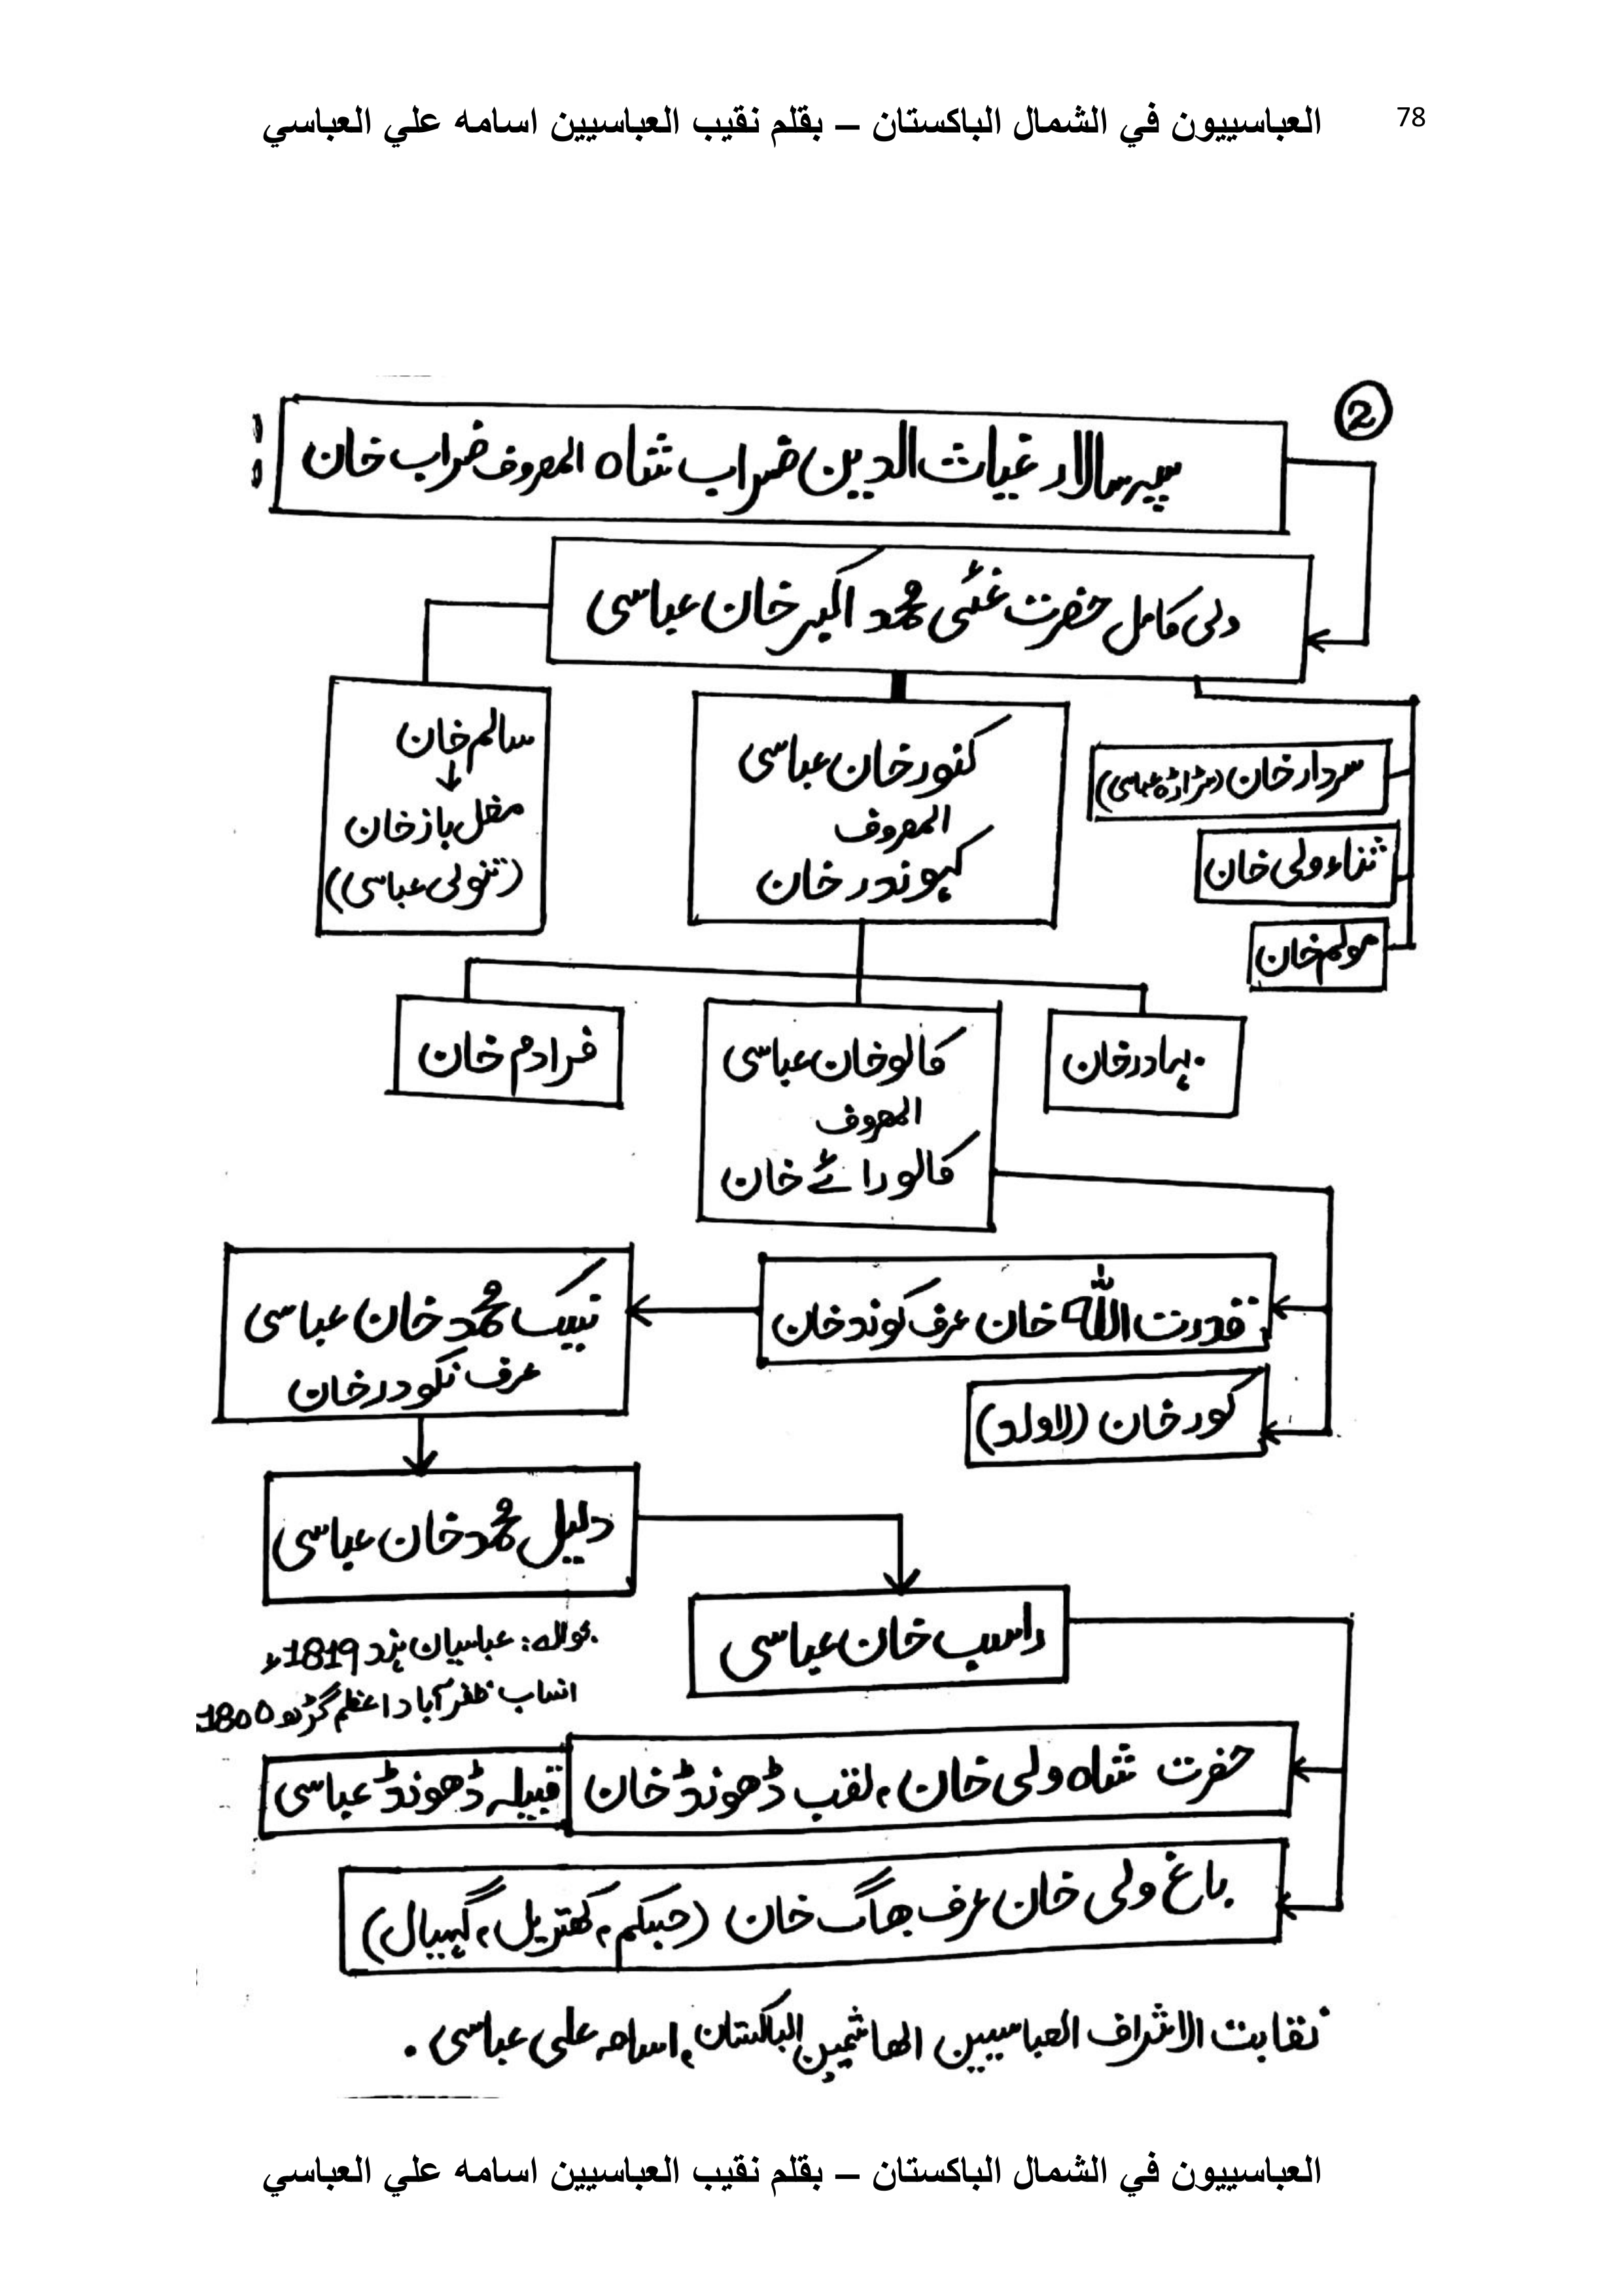 78
العباسييون في الشمال الباكستان – بقلم نقيب العباسيين اسامه علي العباسي
②
سپہ سالار غیاث الدین ضراب شاہ المعروف ضراب خان
ولی کامل حضرت غئی محمد اکبر خان عباسی
سردار خان (سراڑہ عباسی)
ثناء ولی خان
مولم خان
کنور خان عباسی
المعروف
کہوندر خان
سالم خان
مغل باز خان
(تنولی عباسی)
بہادر خان
کالو خان عباسی
المعروف
کالو رائے خان
فرادم خان
قدرت اللہ خان عرف کوند خان
کور خان (لاولد)
نیک محمد خان عباسی
عرف نکودر خان
دلیل محمد خان عباسی
راسب خان عباسی
بحوالہ: عباسیان ہند 1819ء
انساب ظفرآباد اعظم گڑھ 1800
حضرت شاہ ولی خان، لقب ڈھونڈ خان
قبیلہ ڈھونڈ عباسی
باغ ولی خان عرف بھاگ خان (جسکم، کھتریل، گہیال)
نقابت الاشراف العباسیین الھاشمیین الباکستان، اسامہ علی عباسی.
العباسييون في الشمال الباكستان – بقلم نقيب العباسيين اسامه علي العباسي